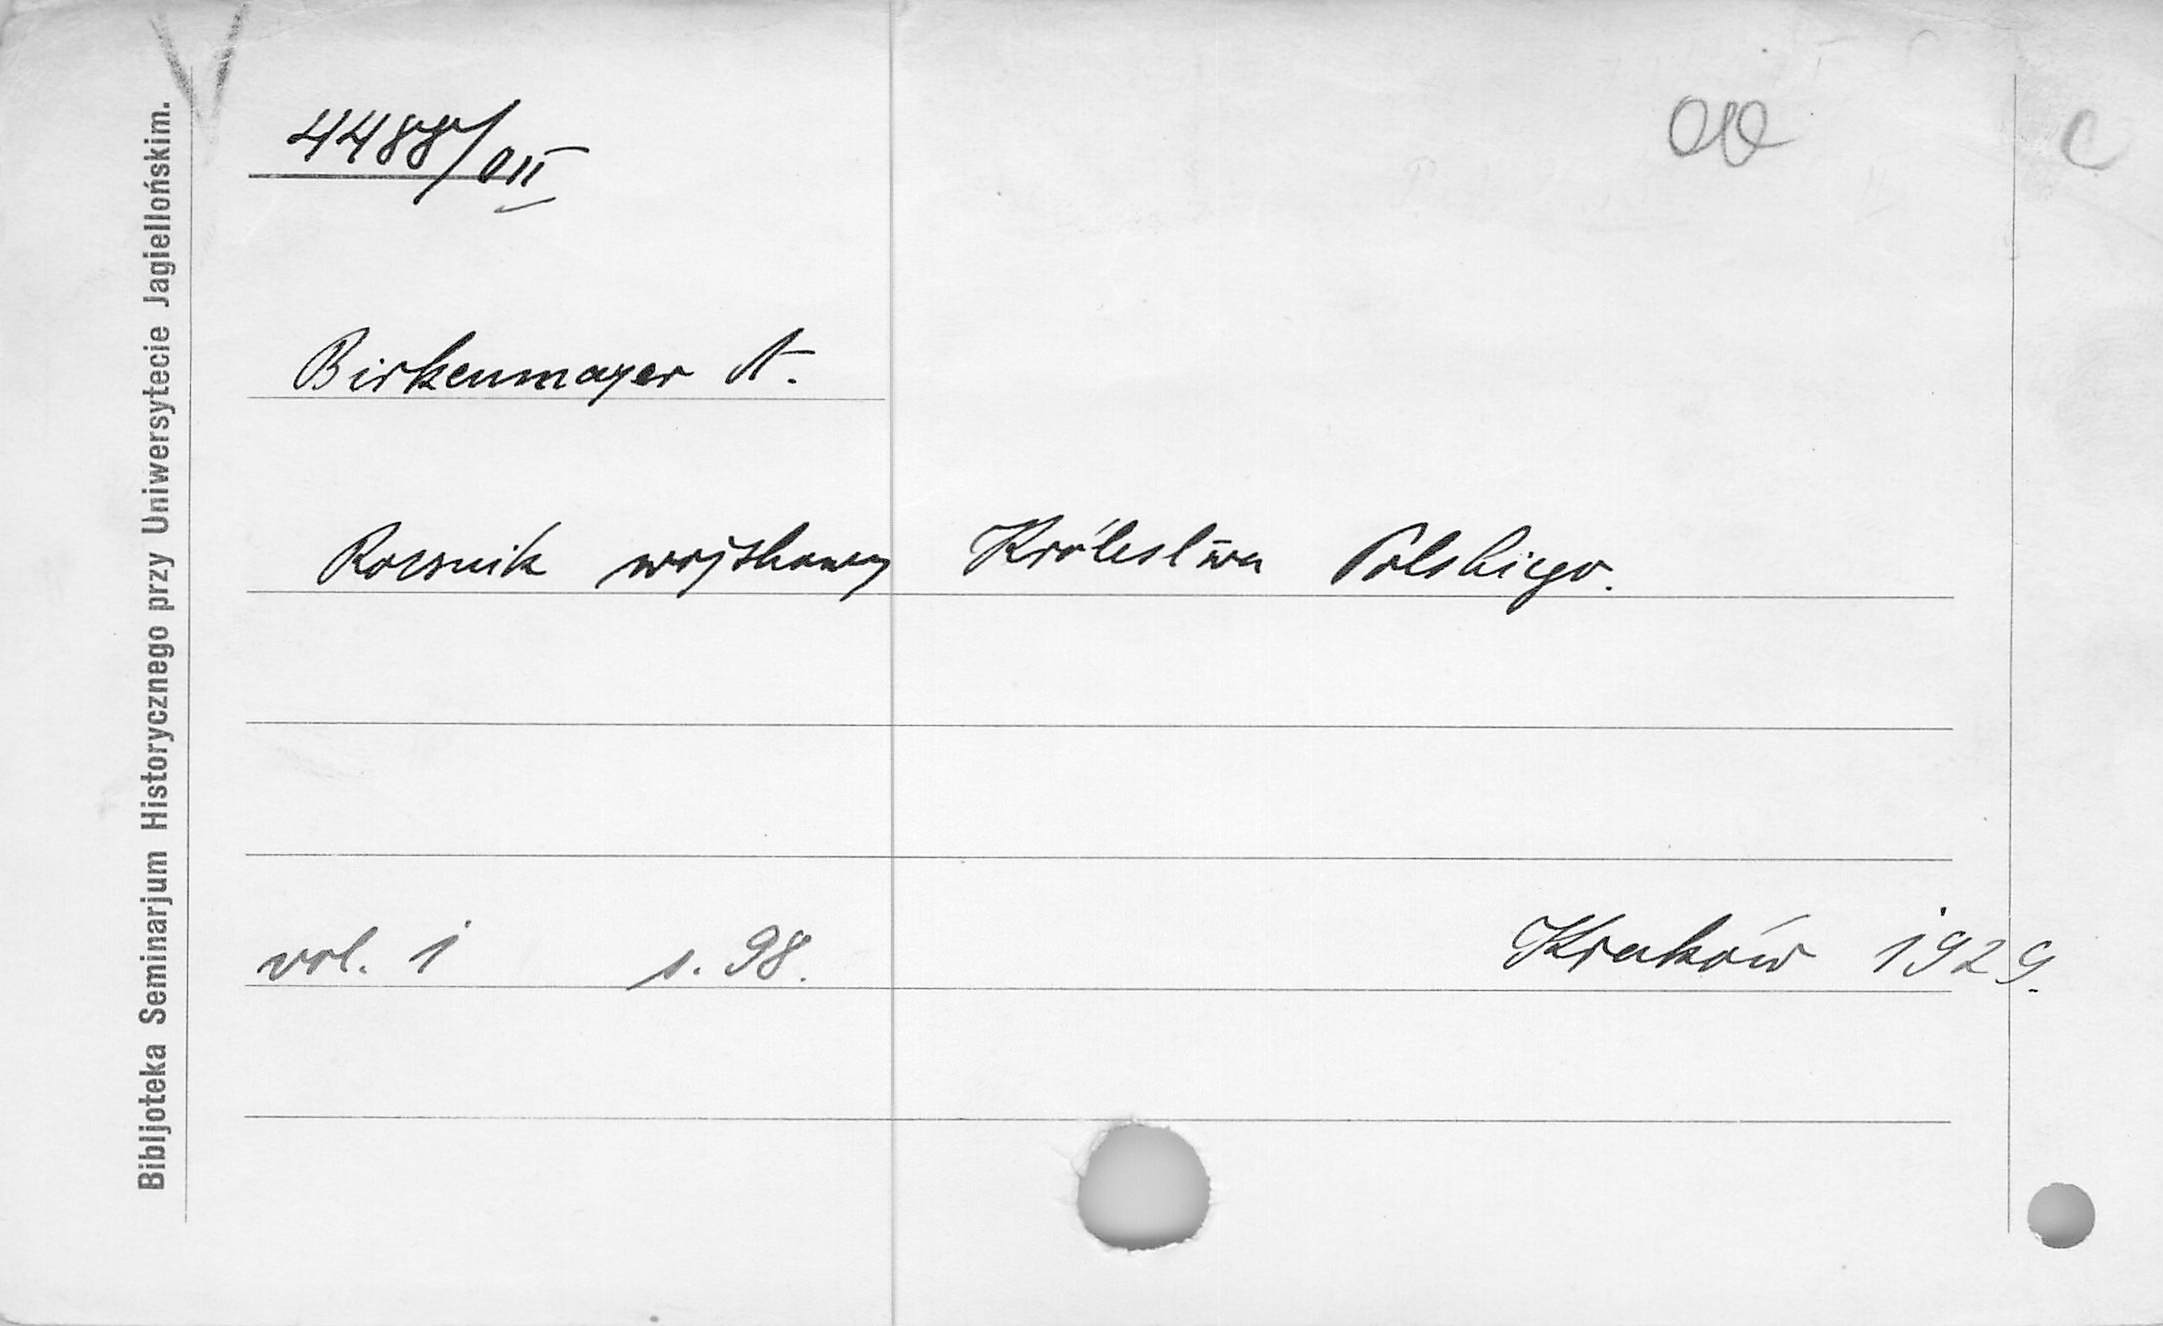 4488/VII
Birkenmayer A.
Rocznik wojskowy Królestwa Polskiego.
vol. 1 s. 98. Kraków 1929.
Bibljoteka Seminarjum Historycznego przy Uniwersytecie Jagiellońskim.